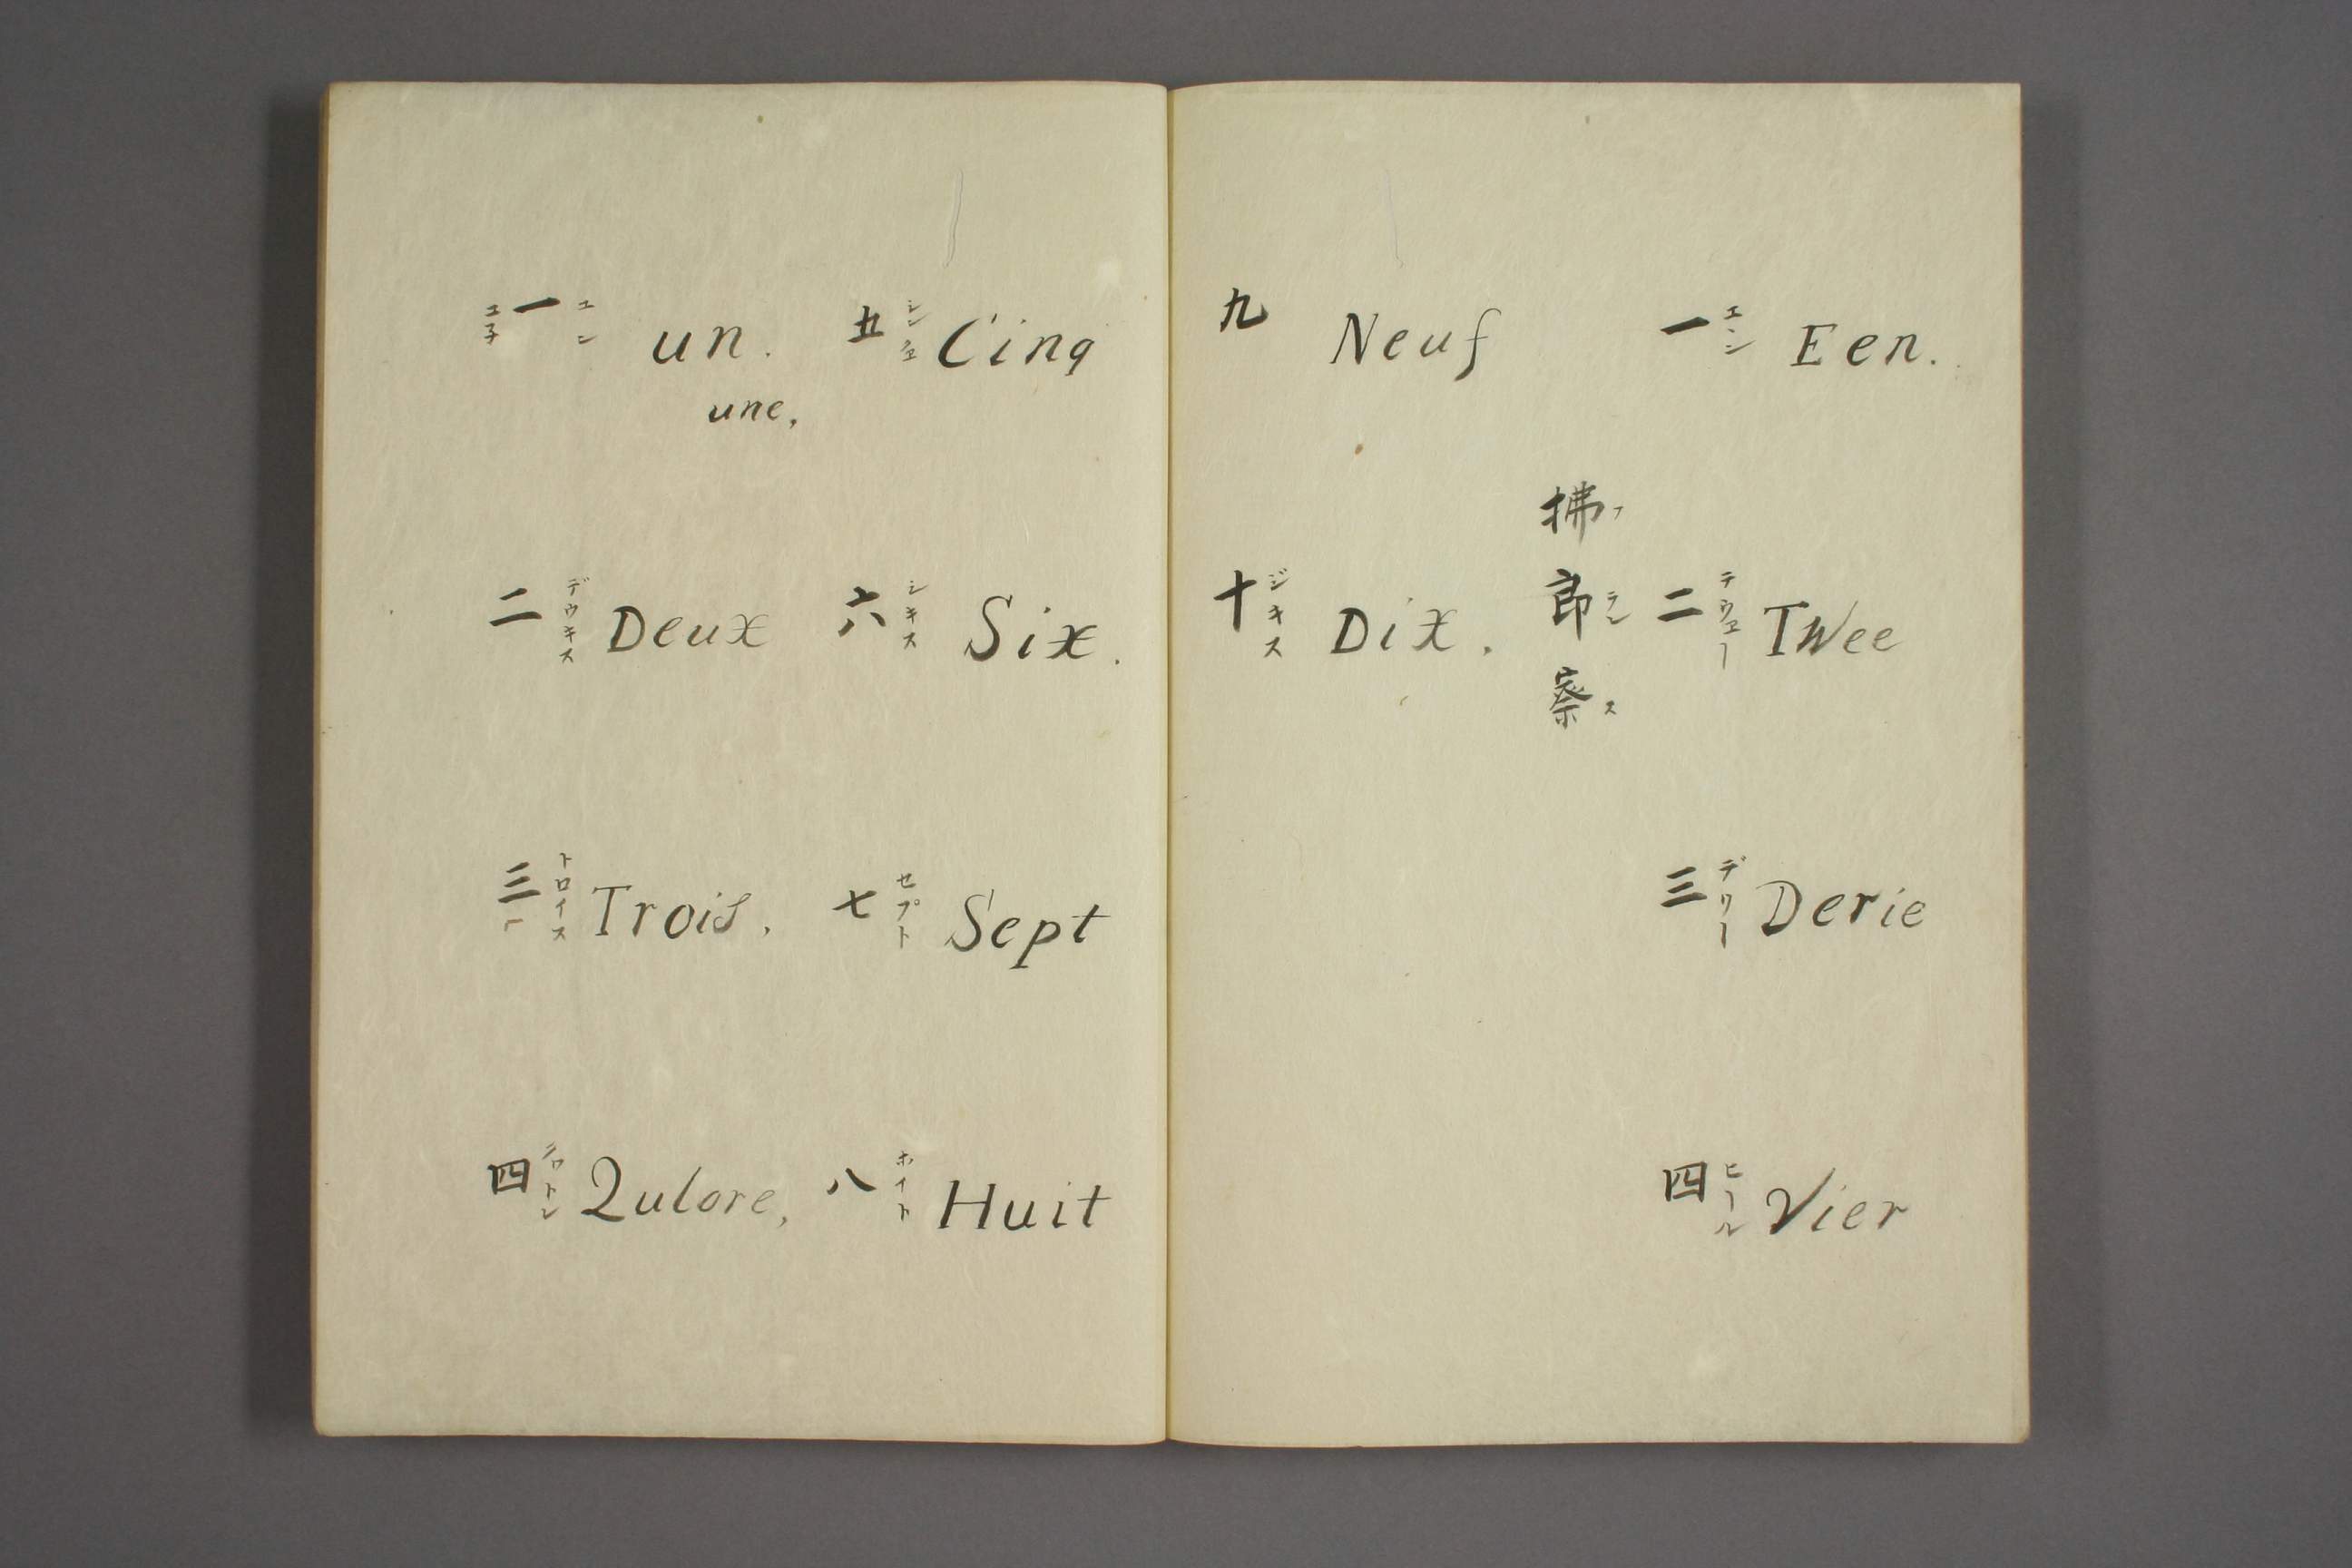 一 ユン ユ子 un.
une,
二 デウキス Deux
三 トロイス Trois.
四 Qulore,
五 Cinq
六 シキス Six.
七 セプト Sept
八 ホイト Huit
九 Neuf
十 ジキス Dix.
拂郎察 フランス
一 エーン Een.
二 テウエー TWee
三 デリー Derie
四 ヒール Vier